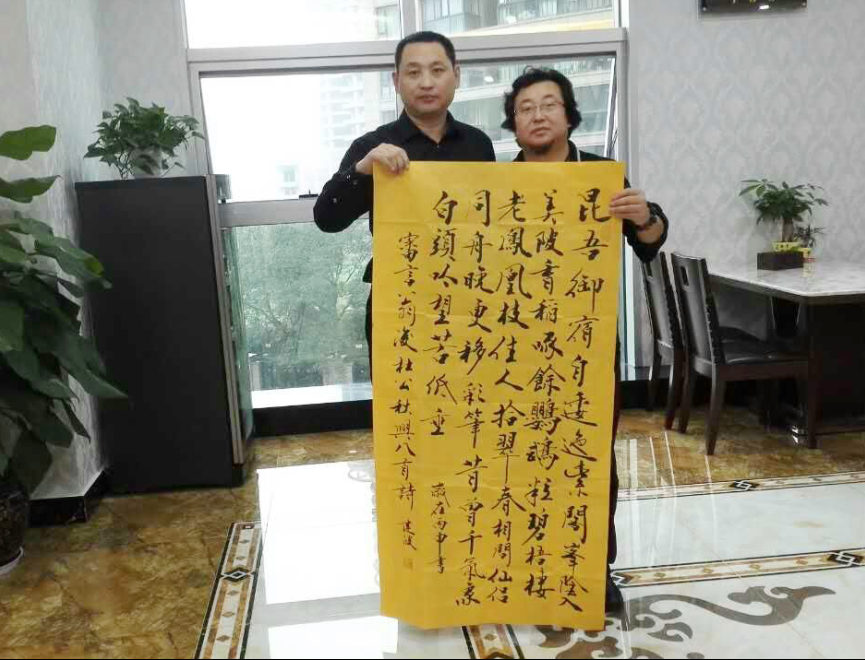 昆吾御宿自逶迤紫閣峯陰入
美陂香稻啄餘鸚鵡粒碧梧棲
老鳳凰枝佳人拾翠春相問仙侶
同舟晚更移彩筆昔曾干氣象
白頭吟望苦低垂 歲在丙申書
審言翁後杜公秋興八首詩